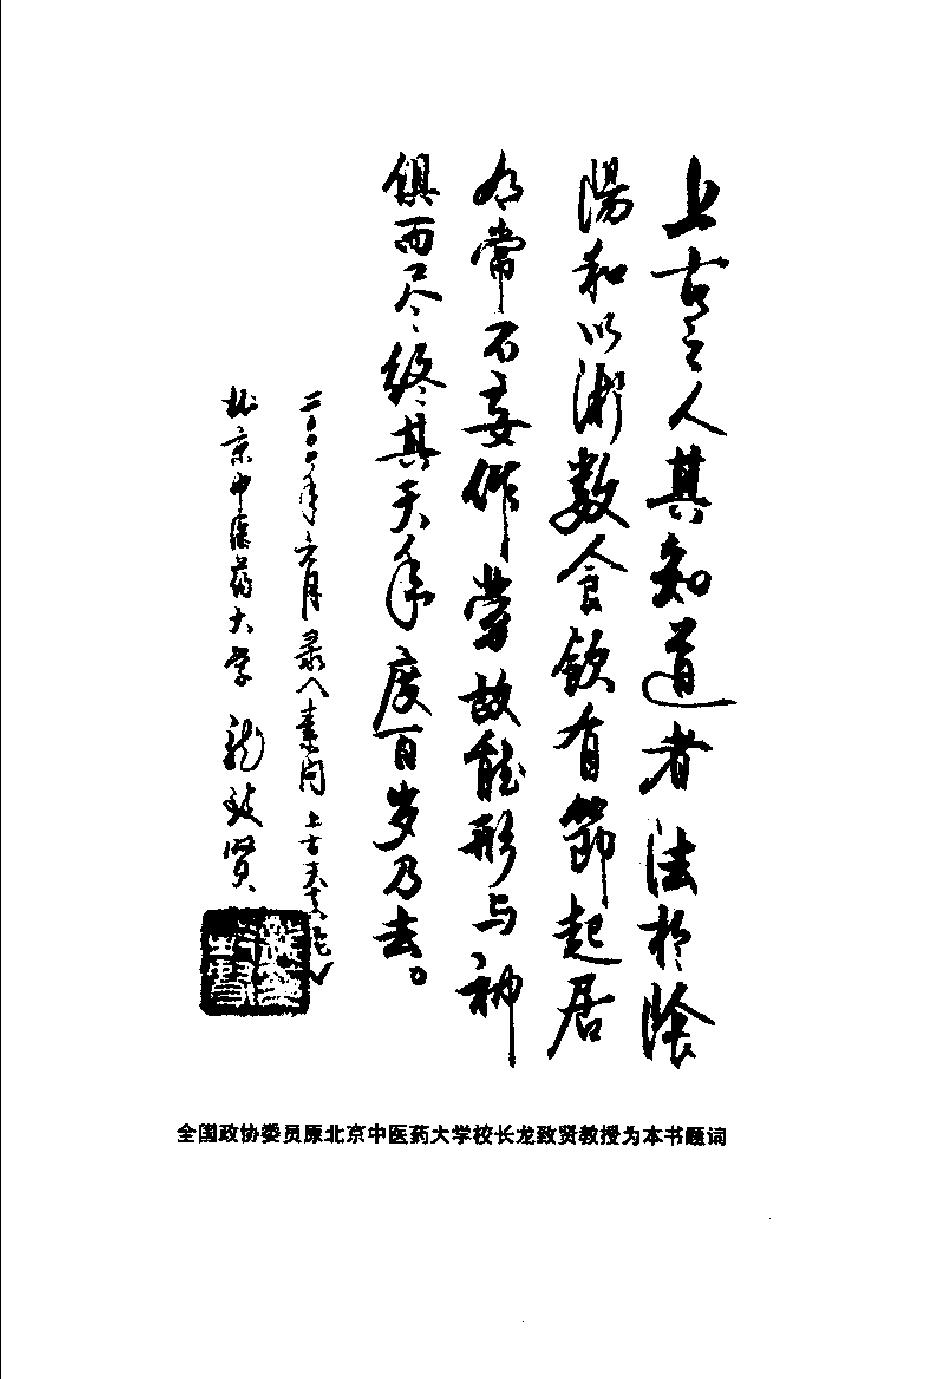 上古之人其知道者法於陰
陽和以術数食飲有節起居
有常不妄作劳故能形与神
俱而尽终其天年度百岁乃去。
二〇〇〇年六月录《素问 上古天真论》
北京中医药大学 龍致贤
全国政协委员原北京中医药大学校长龙致贤教授为本书题词